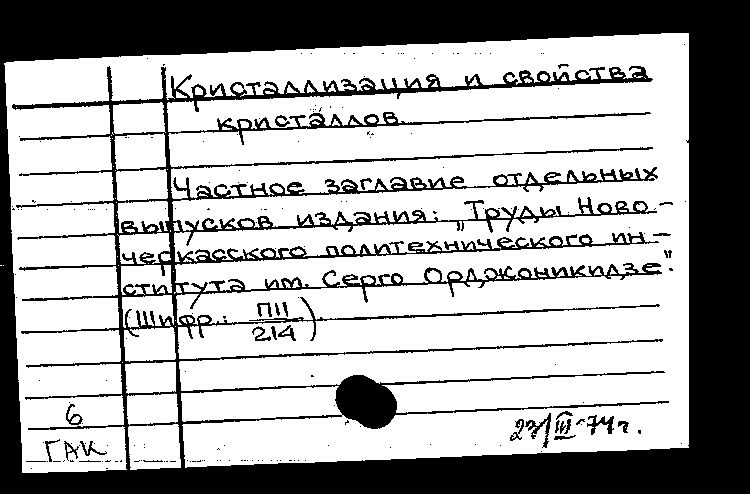 Кристаллизация и свойства
кристаллов
Частное заглавие отдельных
выпусков издания: „Труды Ново-
черкасского политехнического ин-
ститута им. Серго Орджоникидзе".
(Шифр.: П11/214)
6
ГАК
23/III-74г.